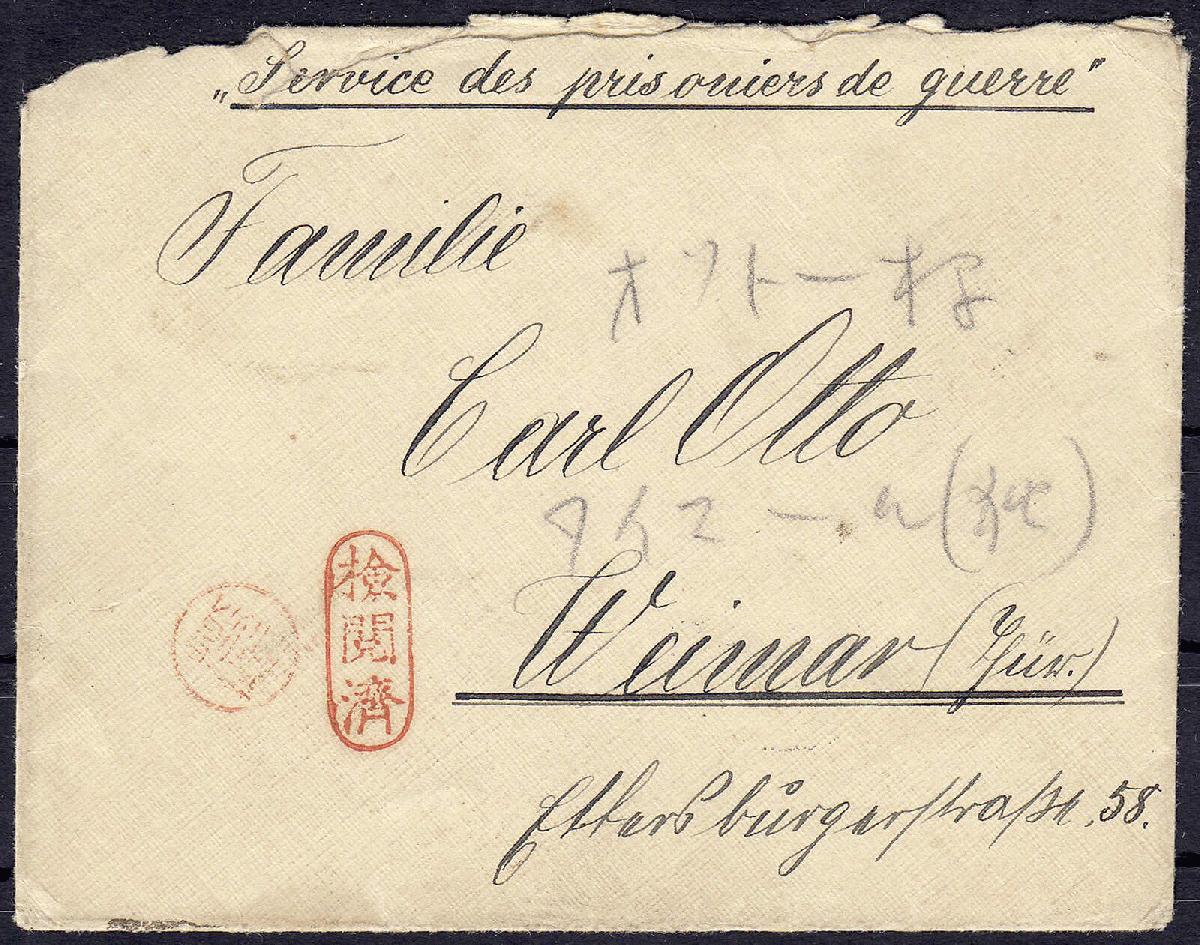 „Service des prisoniers de guerre"
Familie
オットー様
Carl Otto
Weimar (Thür.)
検閲済
Ettersburgerstraße, 58.